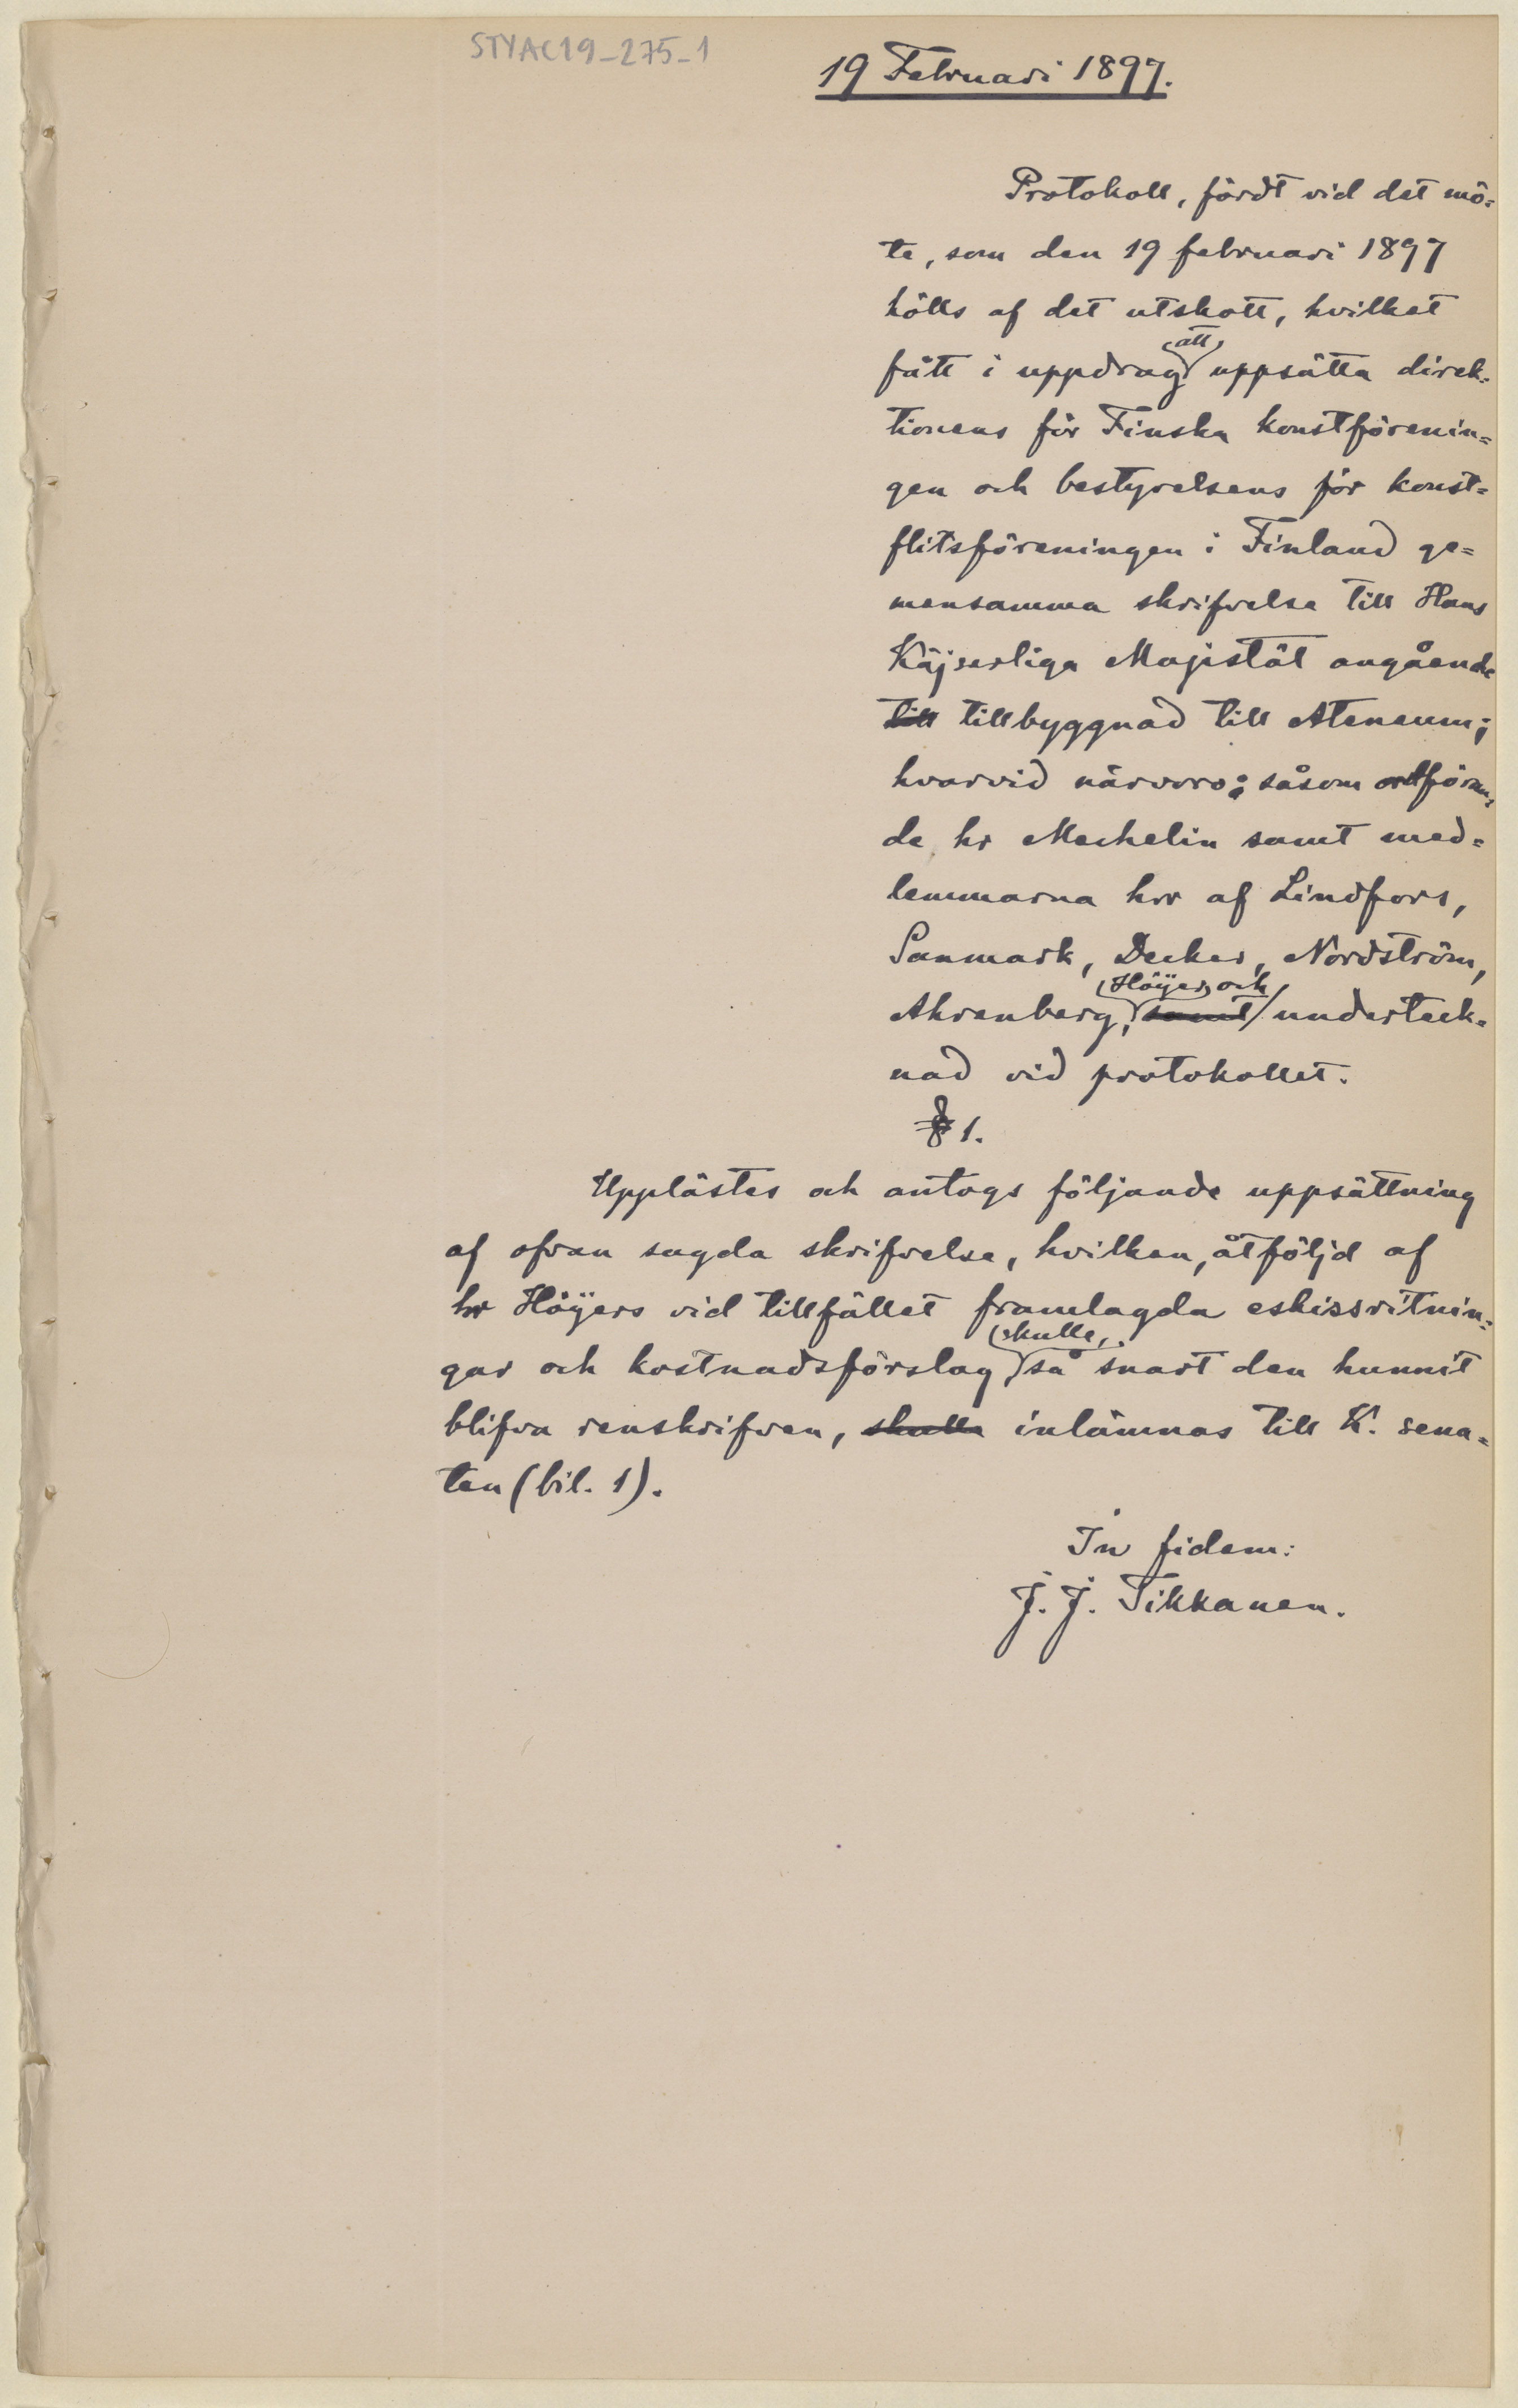 STYAC19_275_1
19 Februari 1897.
Protokoll, fördt vid det mö=
te, som den 19 februari 1897
hölls af det utskott, hvilket
fått i uppdrag att uppsätta direk=
tionens för Finska konstförenin=
gen och bestyrelsens för konst=
flitsföreningen i Finland ge=
mensamma skrifvelse till Hans
Käjserliga Majestät angående
till tillbyggnad till Ateneum;
hvarvid närvoro: såsom ordföran=
de hr Mechelin samt med=
lemmarna hrr af Lindfors,
Sanmark, Decker, Nordström,
Ahrenberg, Höÿer och samt underteck=
nad vid protokollet.
§ 1.
Upplästes och antogs följande uppsättning
af ofvan sagda skrifvelse, hvilken, åtföljd af
hr Höÿers vid tillfället framlagda eskissritnin=
gar och kostnadsförslag, skulle, så snart den hunnit
blifva renskrifven, skulle inlämnas till K. sena=
ten (bil. 1).
In fidem:
J. J. Tikkanen.